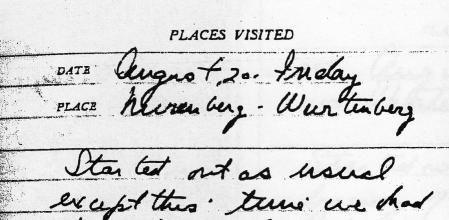 PLACES VISITED
DATE August, 20. Friday
PLACE Nurenberg - Wurtenberg
Started out as usual
except this time we had